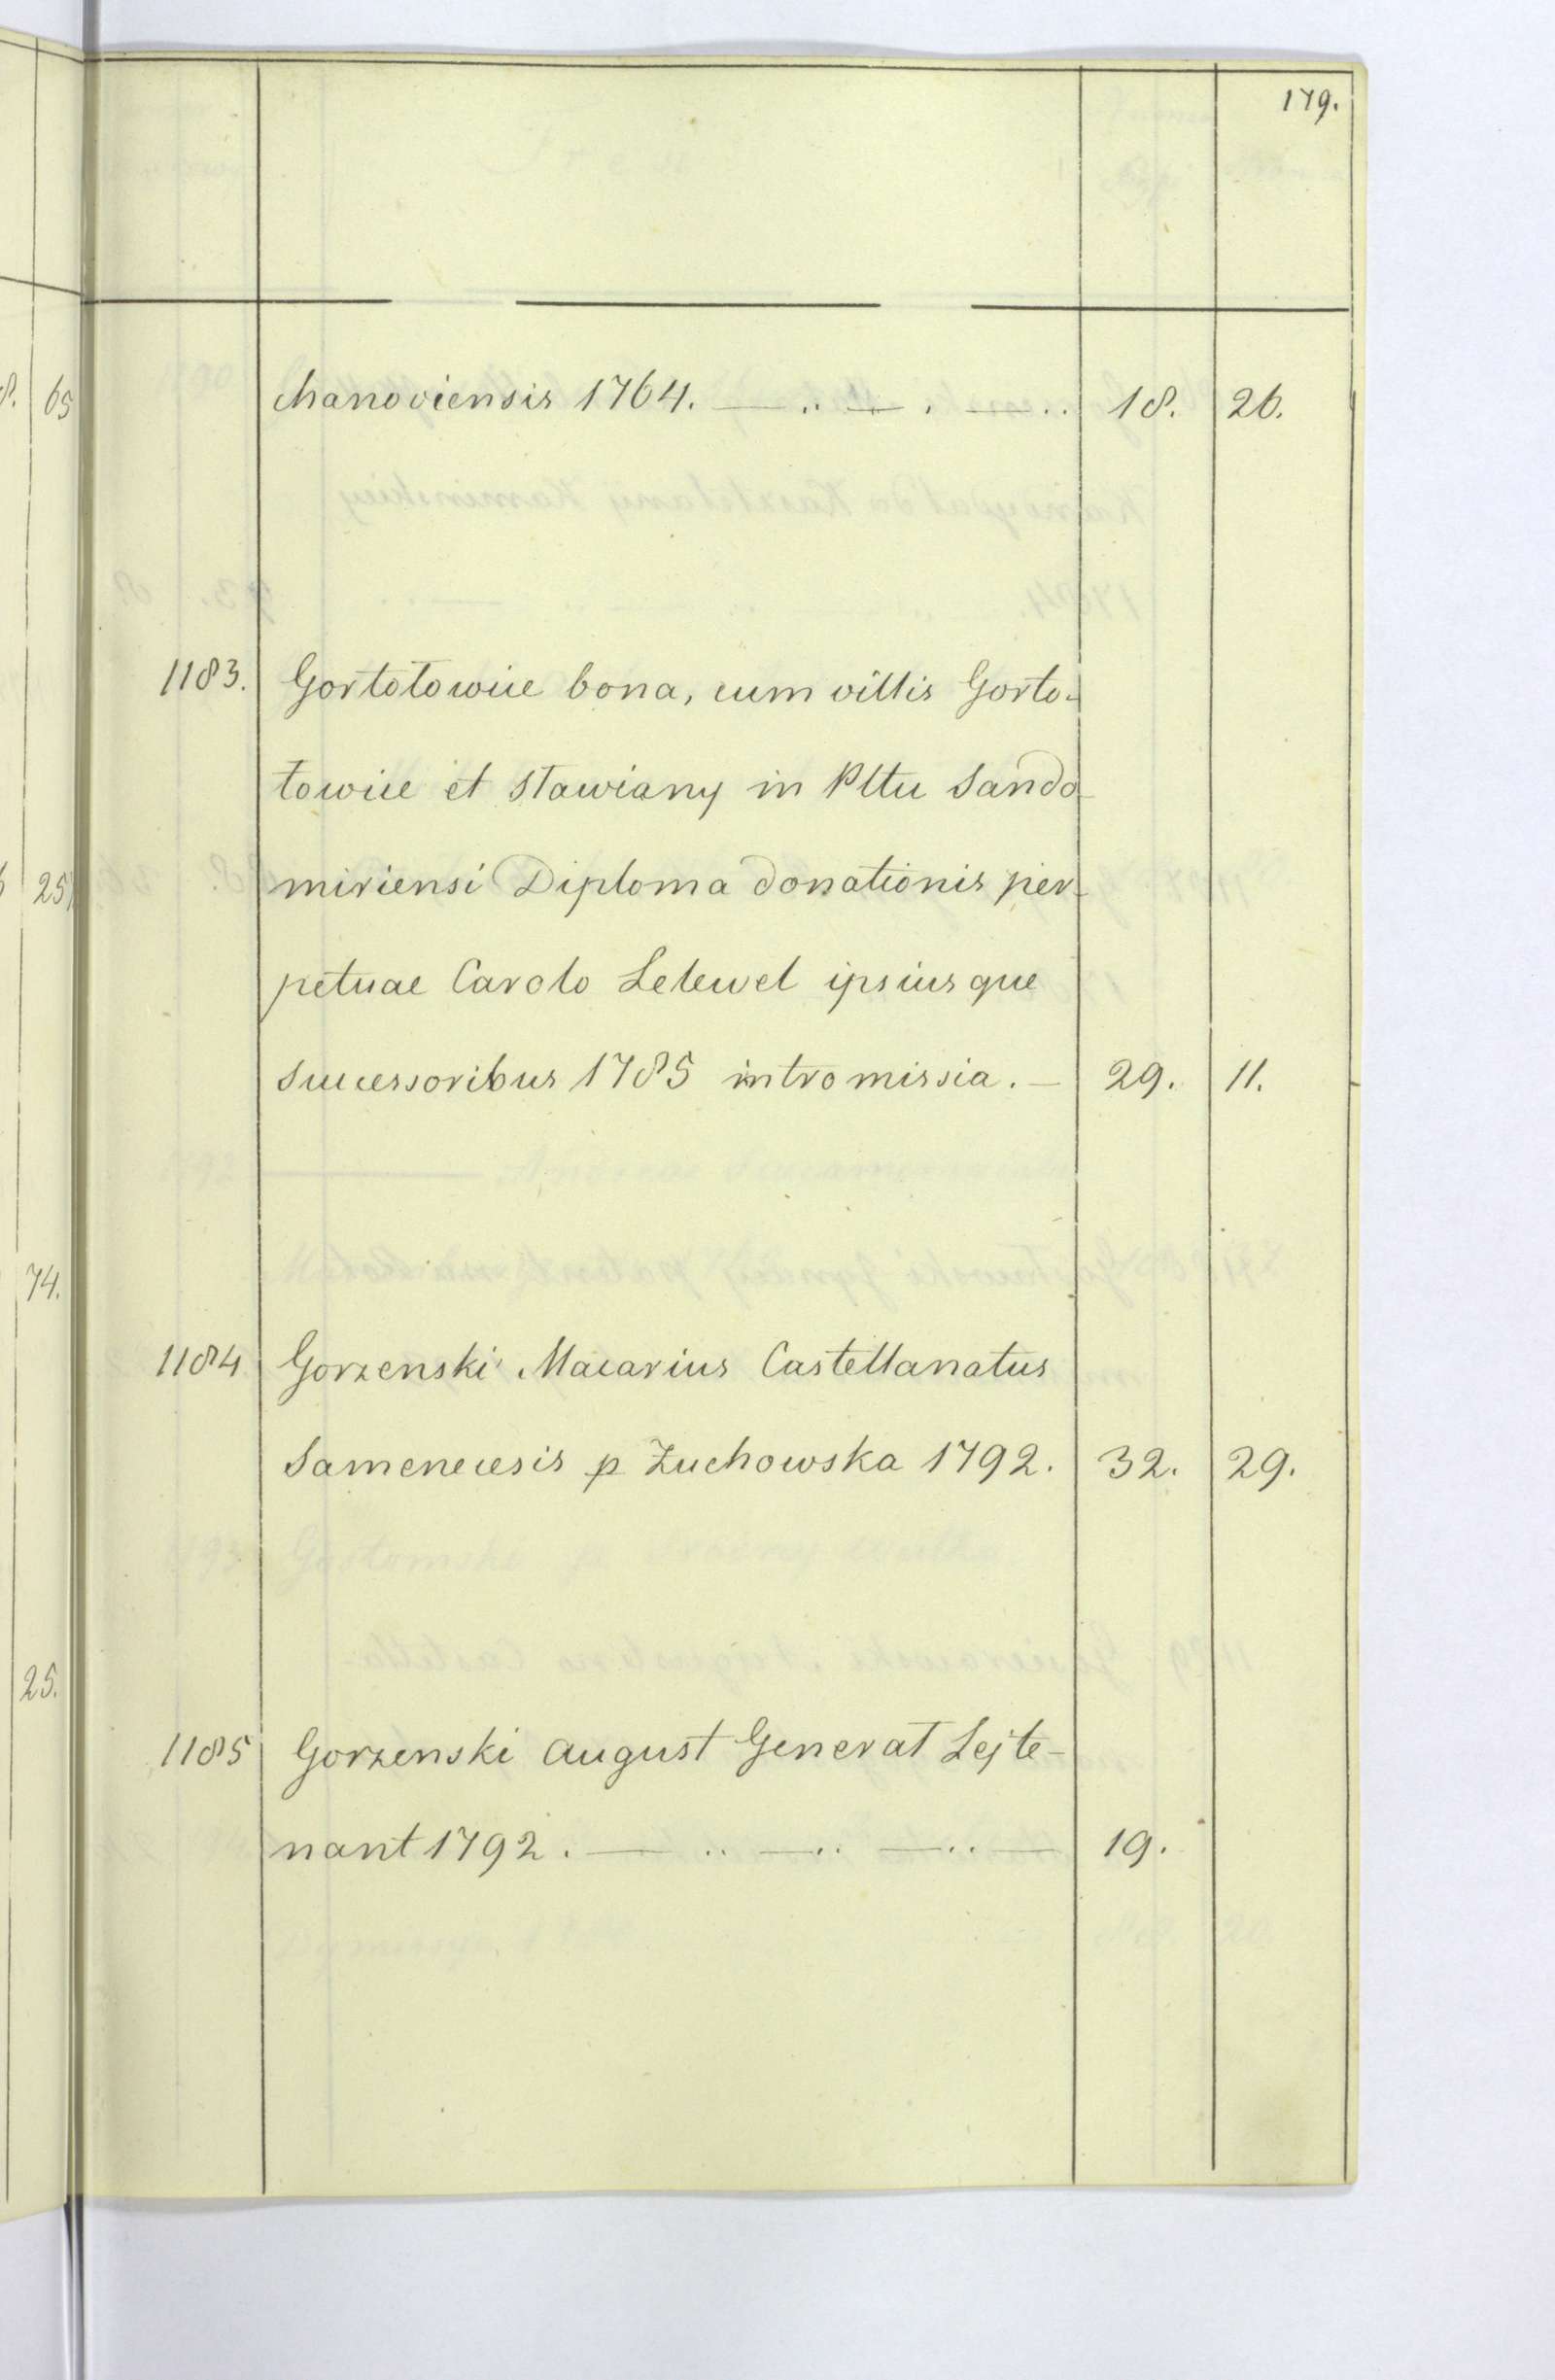 179.
chanoviensis 1764. — .. — . — .. 18. 26.
1183. Gortotowice bona, cum villis Gorto-
towice et Stawiany in Pltu Sando-
miriensi Diploma donationis per-
petuae Carolo Lelewel ipsiusque
successoribus 1785 intromissia. — 29. 11.
1184 Gorzenski Macarius Castellanatus
Samenecesis p Zuchowska 1792. 32. 29.
1185 Gorzenski August Generat Lejte-
nant 1792. — .. — .. — .. — 19.
65
25
74.
25.